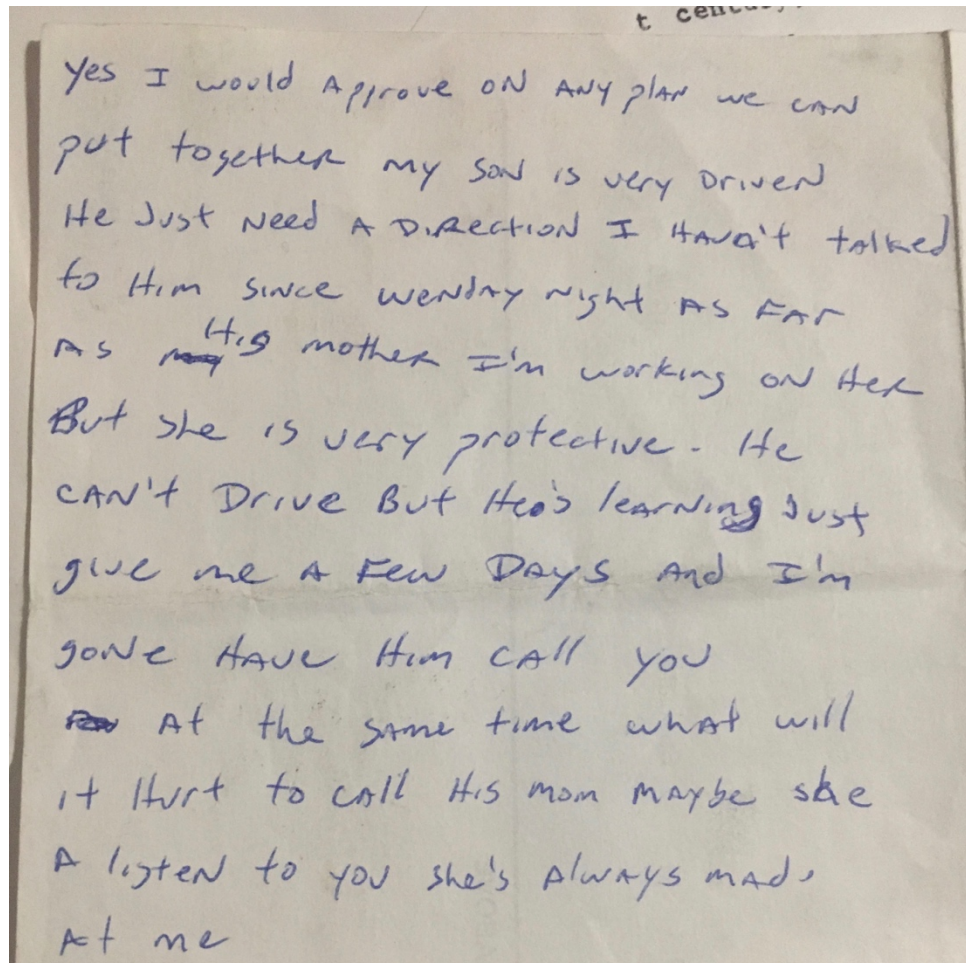 t century
yes I would Approve oN ANY plAN we cAN
put togetheR my soN is very DriveN
He Just Need A DiRectioN I HAven't tAlked
to Him siNce weNdAy Night As FAr
As His motheR I'm workiNg oN HeR
But she is very protective. He
cAN't Drive But He's leArNiNg Just
give me A Few DAys ANd I'm
goNe HAve Him cAll you
At the sAme time whAt will
it Hurt to cAll His mom mAybe she
A listeN to you she's AlwAys mAd
At me